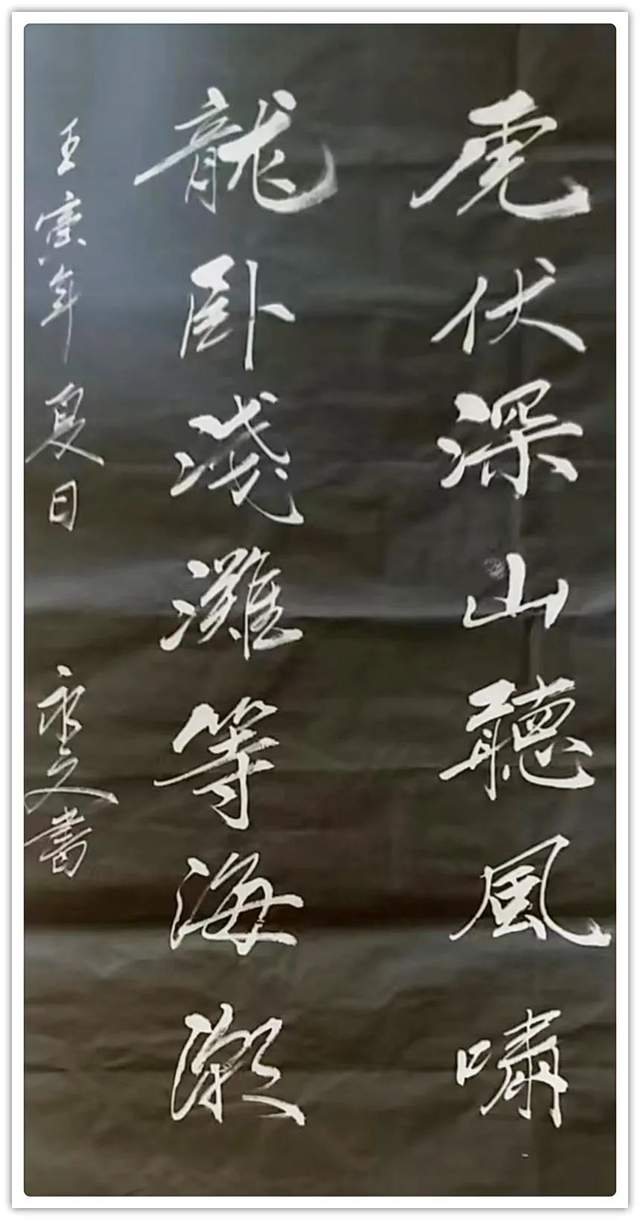 虎伏深山聽風嘯
龍卧淺灘等海潮
壬寅年夏日 永文書